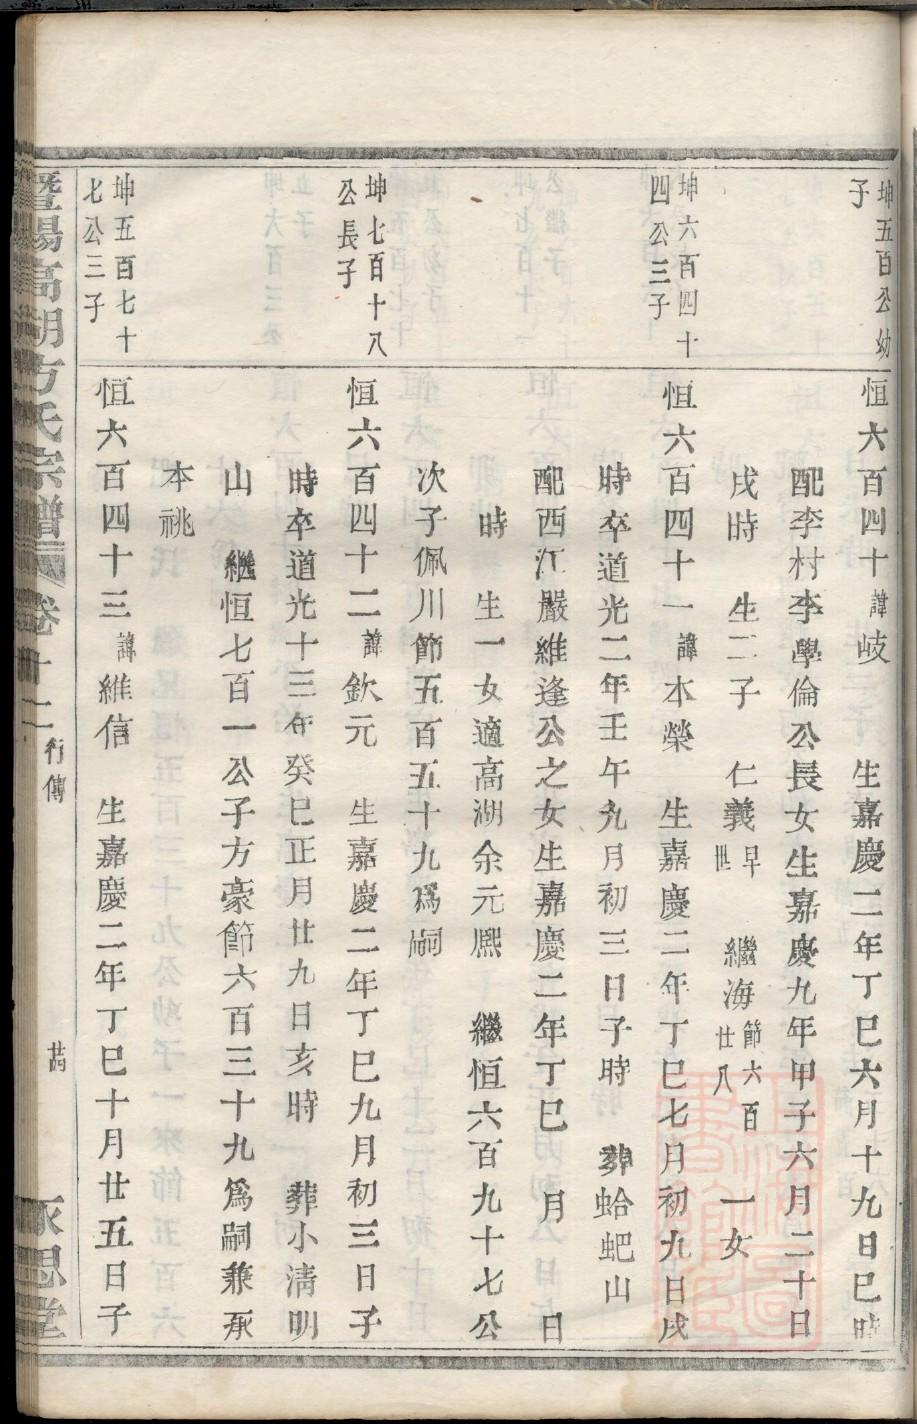 坤五百公幼
子
恒六百四十諱岐　生嘉慶二年丁巳六月十九日巳時
配李村李學倫公長女生嘉慶九年甲子六月二十日
戌時　生二子　仁義早世　繼海節六百廿八　一女
坤六百四十
四公三子
恒六百四十一諱木榮　生嘉慶二年丁巳七月初九日戌
時卒道光二年壬午九月初三日子時　葬蛤蚆山
配西江嚴維逢公之女生嘉慶二年丁巳　月　日
時　生一女適高湖余元熈　繼恒六百九十七公
次子佩川節五百五十九爲嗣
坤七百十八
公長子
恒六百四十二諱欽元　生嘉慶二年丁巳九月初三日子
時卒道光十三年癸巳正月廿九日亥時　葬小淸明
山　繼恒七百一公子方豪節六百三十九爲嗣兼承
本祧
坤五百七十
七公三子
恒六百四十三諱維信　生嘉慶二年丁巳十月廿五日子
暨陽高湖方氏宗譜　卷十二　行傳　永思堂